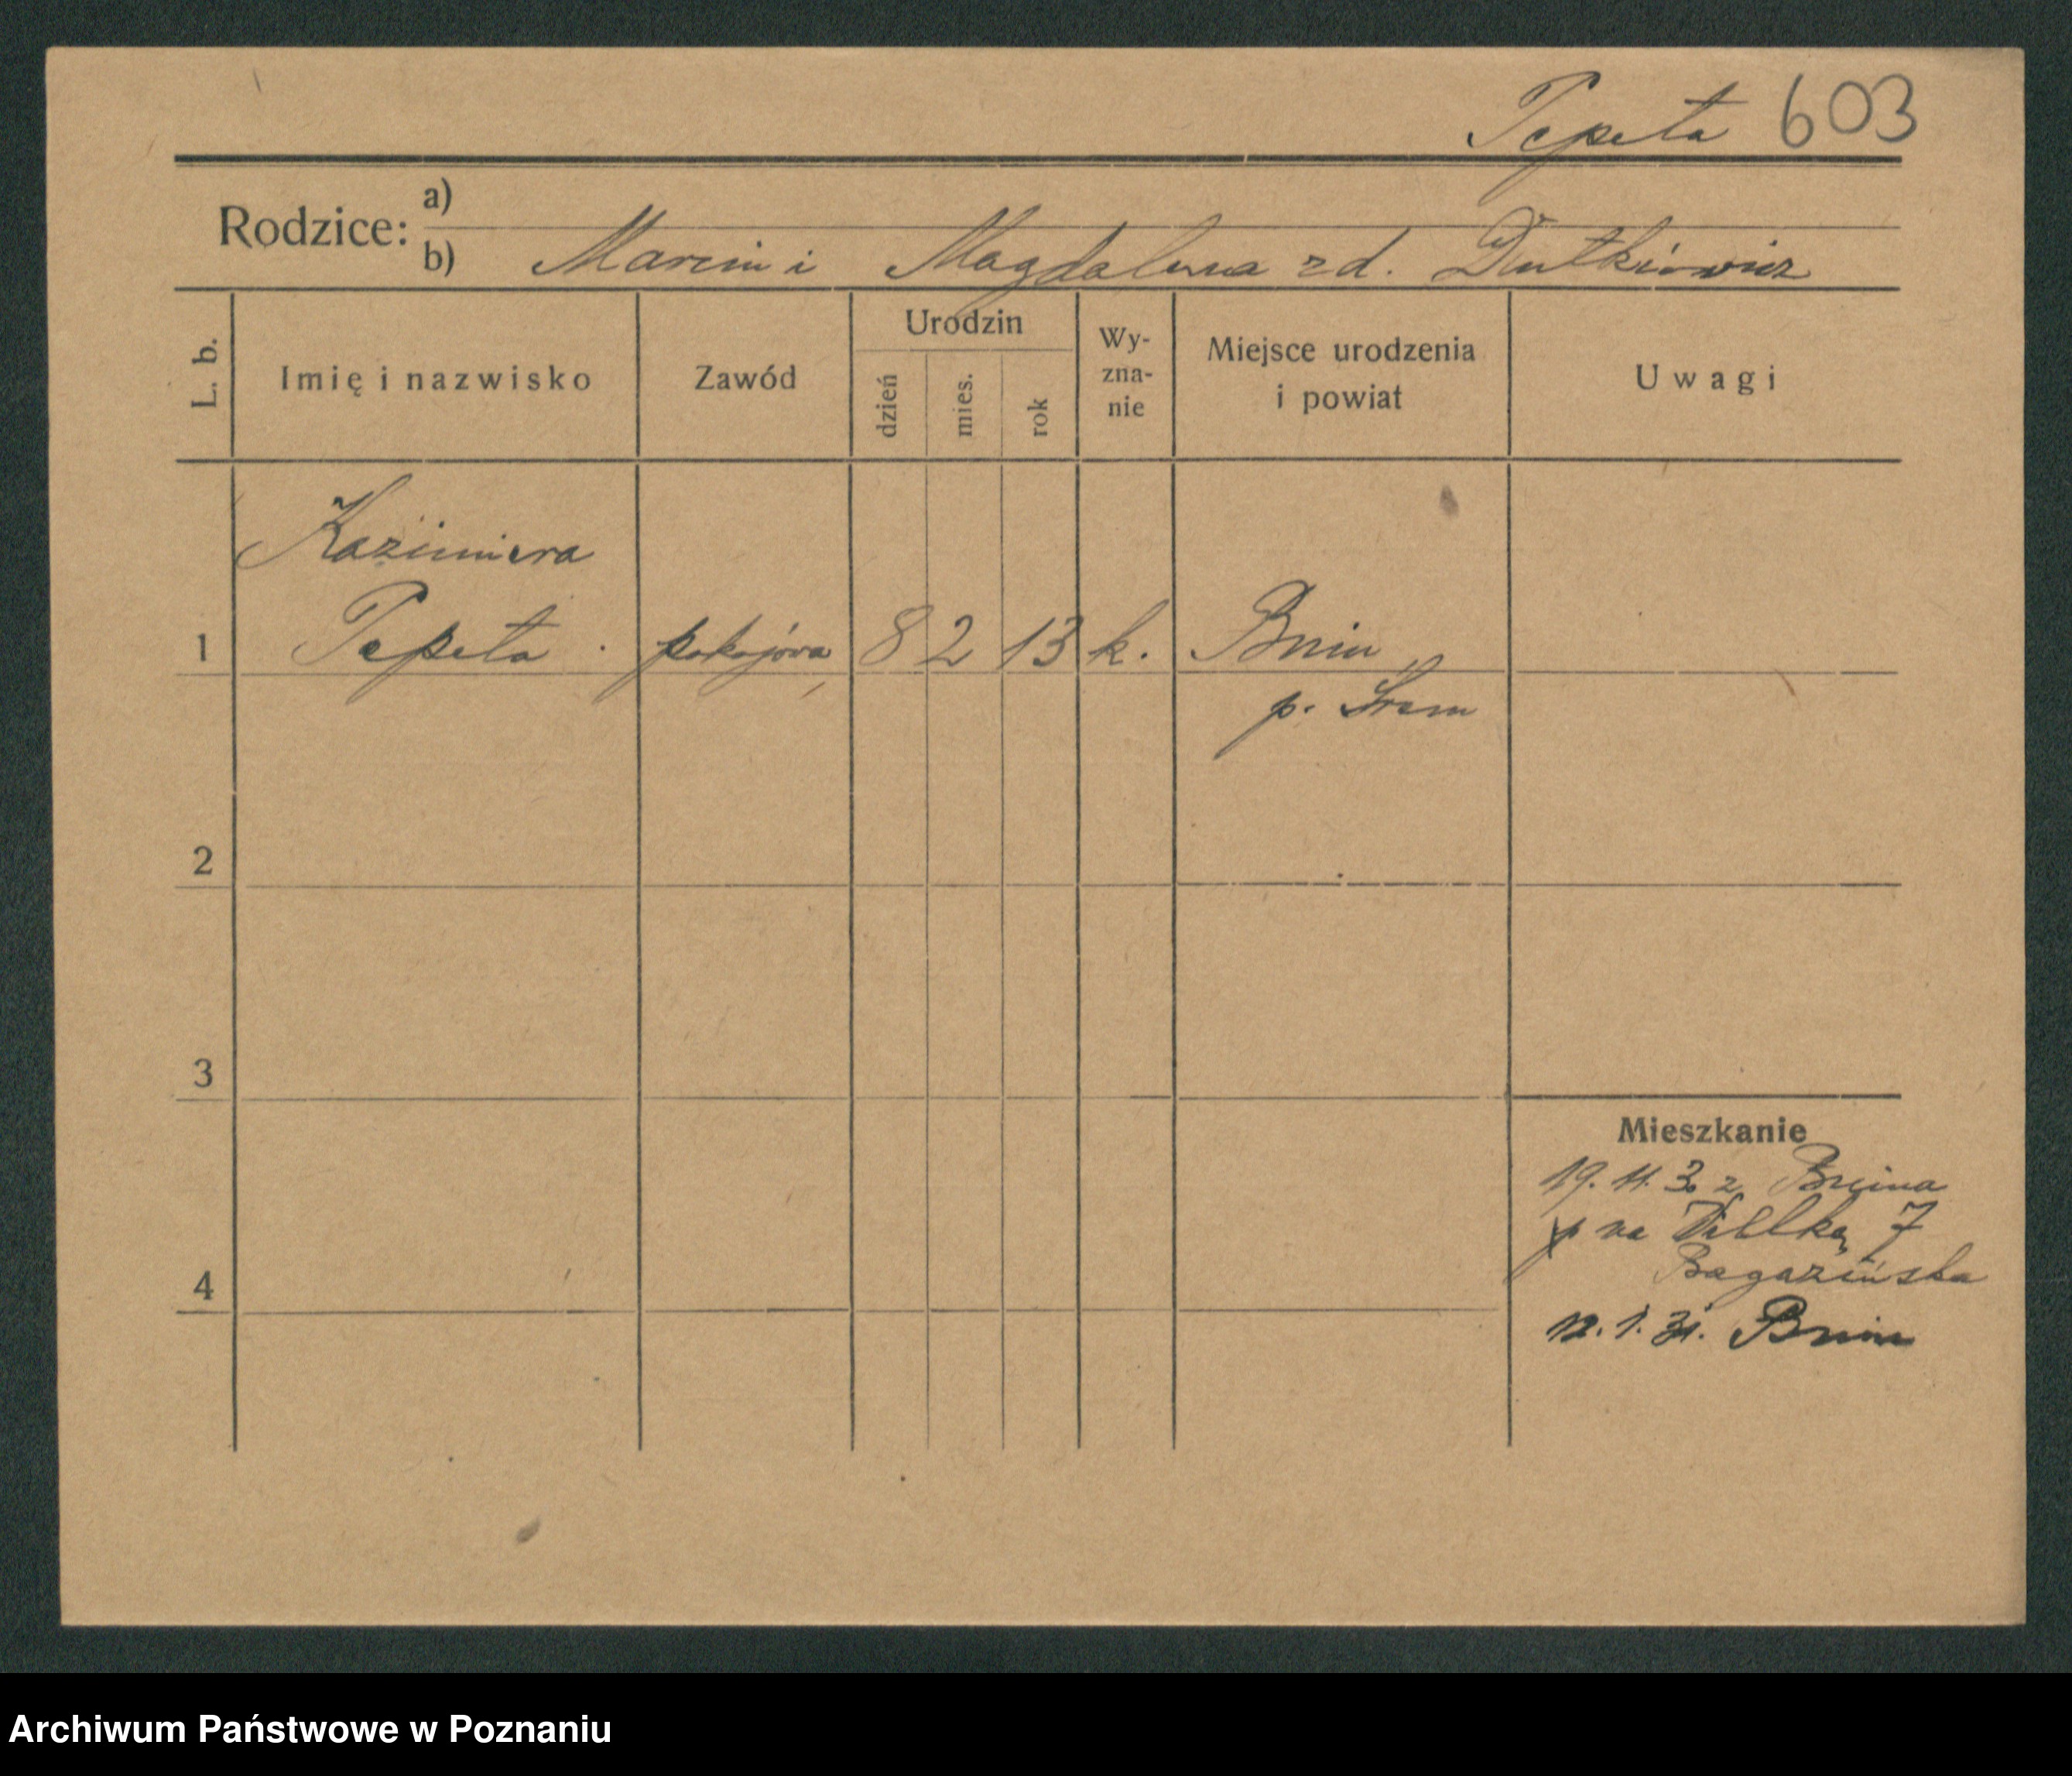 Tepeta 603
Rodzice: a)
b) Marcin i Magdalena zd. Dutkiewicz
L. b.
Imię i nazwisko
Zawód
Urodzin
dzień
mies.
rok
Wy-
zna-
nie
Miejsce urodzenia
i powiat
Uwagi
Kazimiera
1 Tepeta pokojowa 8 2 13 k. Bnin
p. Śrem
2
3
Mieszkanie
19. 11. 30 z Bnina
na 7
4
12. 1. 31. Bnin
Archiwum Państwowe w Poznaniu